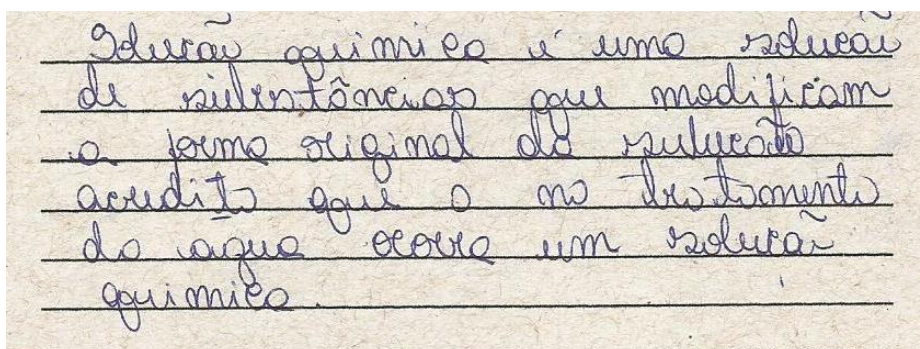 Solucão quimica é uma solucão
de substâncias que modificam
a forma original da
acredito que o no tratamento
da agua ocorre um solucão
quimica.